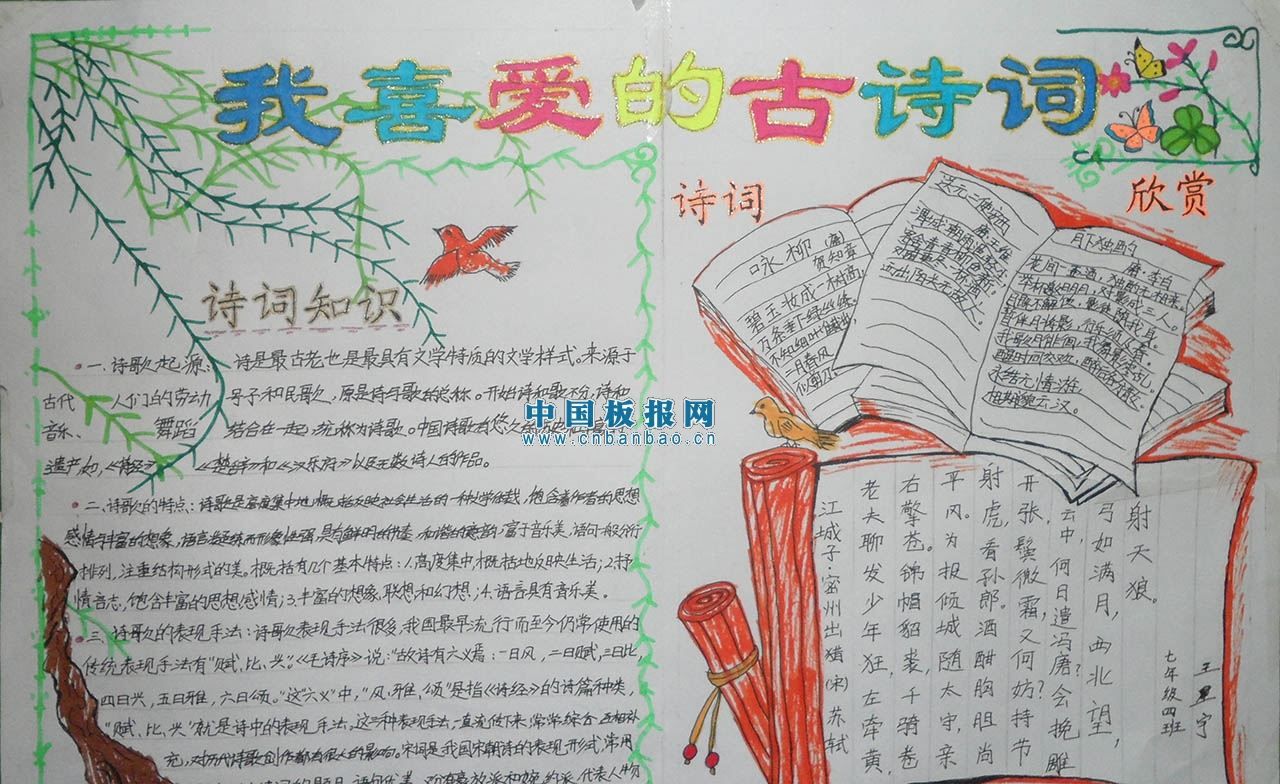 我喜爱的古诗词
诗词知识
一、诗歌起源:诗是最古老也是最具有文学特质的文学样式。来源于
古代 人们的劳动 号子和民歌,原是诗与歌的总称。开始诗和歌不分,诗和
音乐、 舞蹈 结合在一起,统称为诗歌。中国诗歌
遗产,如,《诗经》 《楚辞》和《汉乐府》以及无数诗人的作品。
二、诗歌的特点:诗歌是高度集中地概括反映社会生活的一种文学体裁,饱含着作者的思想
感情与丰富的想象,语言凝练而形象性强,具有鲜明的节奏,和谐的音韵,富于音乐美,语句一般分行
排列,注重结构形式的美。概括有几个基本特点:1.高度集中,概括地反映生活;2.抒
情言志,饱含丰富的思想感情;3.丰富的想象、联想和幻想;4.语言具有音乐美。
三、诗歌的表现手法:诗歌表现手法很多,我国最早流行而至今仍常使用的
传统表现手法有"赋、比、兴"。《毛诗序》说:"故诗有六义焉:一曰风,二曰赋,三曰比,
四曰兴,五曰雅,六曰颂。"这"六义"中,"风、雅、颂"是指《诗经》的诗篇种类,
"赋、比、兴"就是诗中的表现手法,这三种表现手法一直流传下来,常常综合
充,对历代诗歌创作都有很大的影响。宋词是我国宋朝诗的表现形式,常用
诗词
欣赏
咏柳 (唐)
贺知章
碧玉妆成一树高,
万条垂下绿丝绦。
不知细叶谁裁出,
二月春风
似剪刀。
送元二使安西
唐·王维
渭城朝雨浥轻尘,
客舍青青柳色新。
劝君更尽一杯酒,
西出阳关无故人。
月下独酌
唐·李白
花间一壶酒,独酌无相亲。
举杯邀明月,对影成三人。
月既不解饮,影徒随我身。
暂伴月将影,行乐须及春。
我歌月徘徊,我舞影零乱。
醒时同交欢,醉后各分散。
永结无情游,
相期邈云汉。
江城子·密州出猎(宋)苏轼
老夫聊发少年狂,左牵黄,
右擎苍。锦帽貂裘,千骑卷
平冈。为报倾城随太守,亲
射虎,看孙郎。酒酣胸胆尚
开张,鬓微霜,又何妨?持节
云中,何日遣冯唐?会挽雕
弓如满月,西北望,
射天狼。
七年级四班
中国板报网
www.cnbanbao.cn